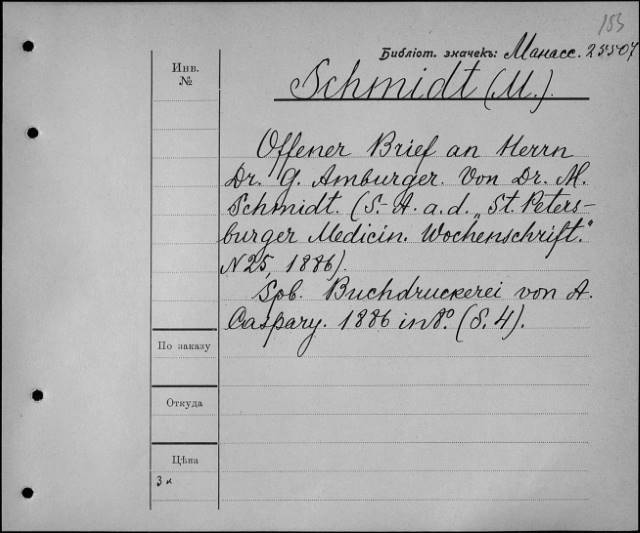 153
Библіот. значекъ: Манасс. 25507
Инв.
№
Schmidt (M.).
Offener Brief an Herrn
Dr. G. Amburger. Von Dr. M.
Schmidt. (S.-A. a. d. „St. Peters-
burger Medicin. Wochenschrift."
N 25, 1886).
Spb. Buchdruckerei von A.
Caspary. 1886 in 8º. (S. 4).
По заказу
Откуда
Цѣна
3 к